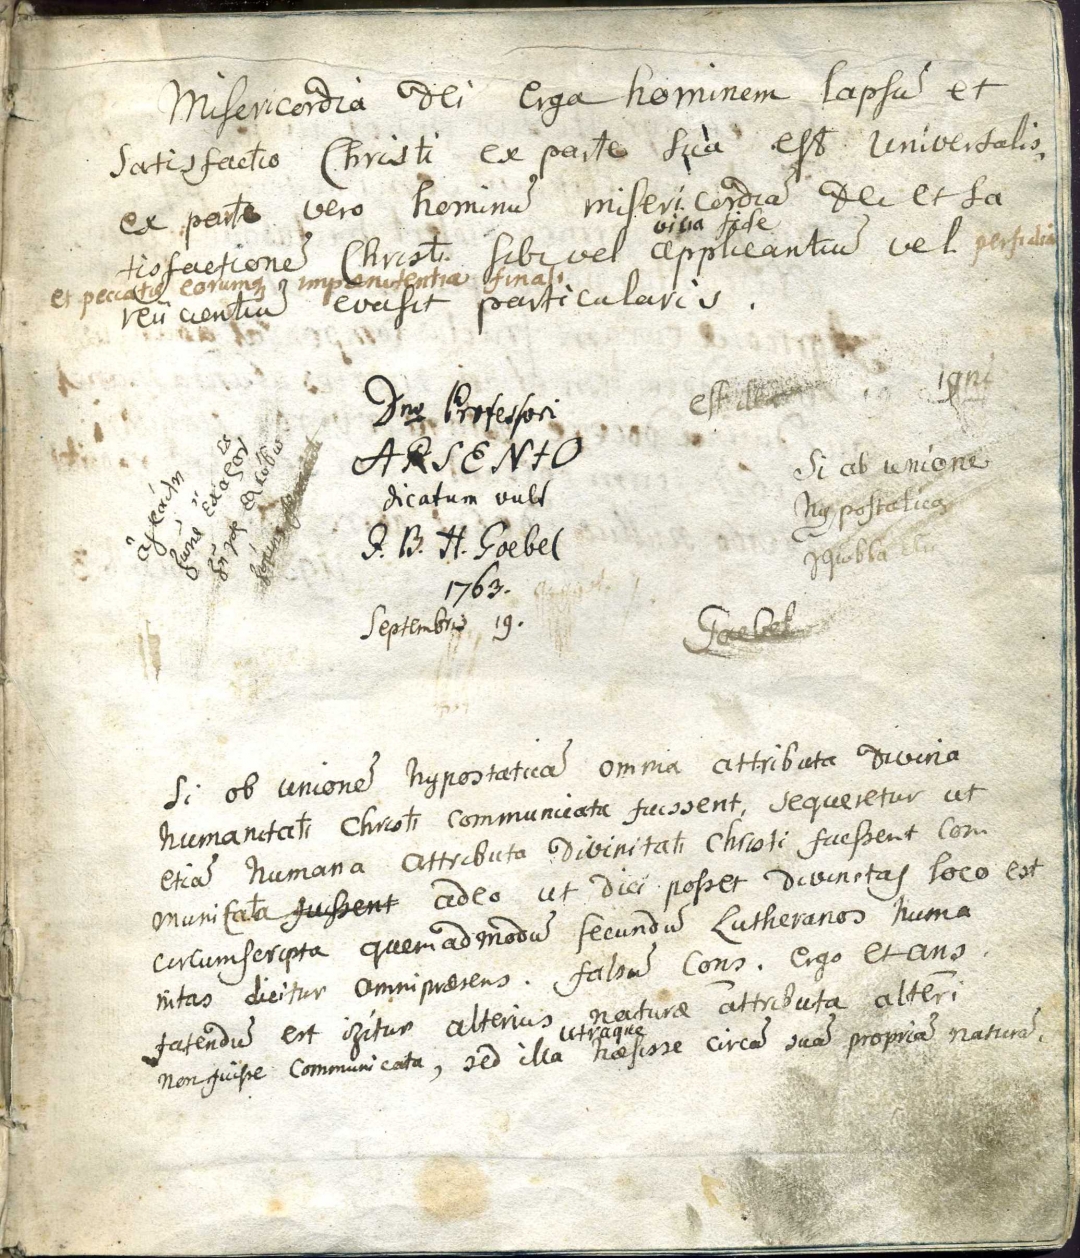 Misericordia Dei erga hominem lapsū et
Satisfactio Christi ex parte sua est universalis,
ex parte vero hominū misericordiā Dei et sa
viva fide
tisfactionē Christi sibi vel applicantiū vel perfidia
et peccatis eorumq impenitentia finali
reiicientiū evasit particularis.
Dno Professori
ARSENIO
dicatum vult
J. B. H. Goebel
1763.
Septembris 19.
est
igni
Si ab unione
Hypostatica
Goebel
Si ob unionē hypostaticā omnia attributa Divina
humanitati Christi communicata fuissent, sequeretur ut
etiā humana attributa Divinitati Christi fuissent com
municata fuissent adeo ut dici posset Divinitas loco est
circumscripta quemadmodū secundū Lutheranos huma
nitas dicitur omnipræsens. falsū Cons. Ergo et ans.
fatendū est igitur alterius naturæ attributa alteri
utraque
non fuisse communicata, sed illa hæsisse circā suā propriā naturā.